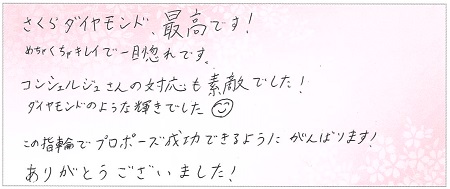 さくらダイヤモンド、最高です!
めちゃくちゃキレイで一目惚れです。
コンシェルジュさんの対応も素敵でした!
ダイヤモンドのような輝きでした
この指輪でプロポーズ成功できるように がんばります!
ありがとうございました!